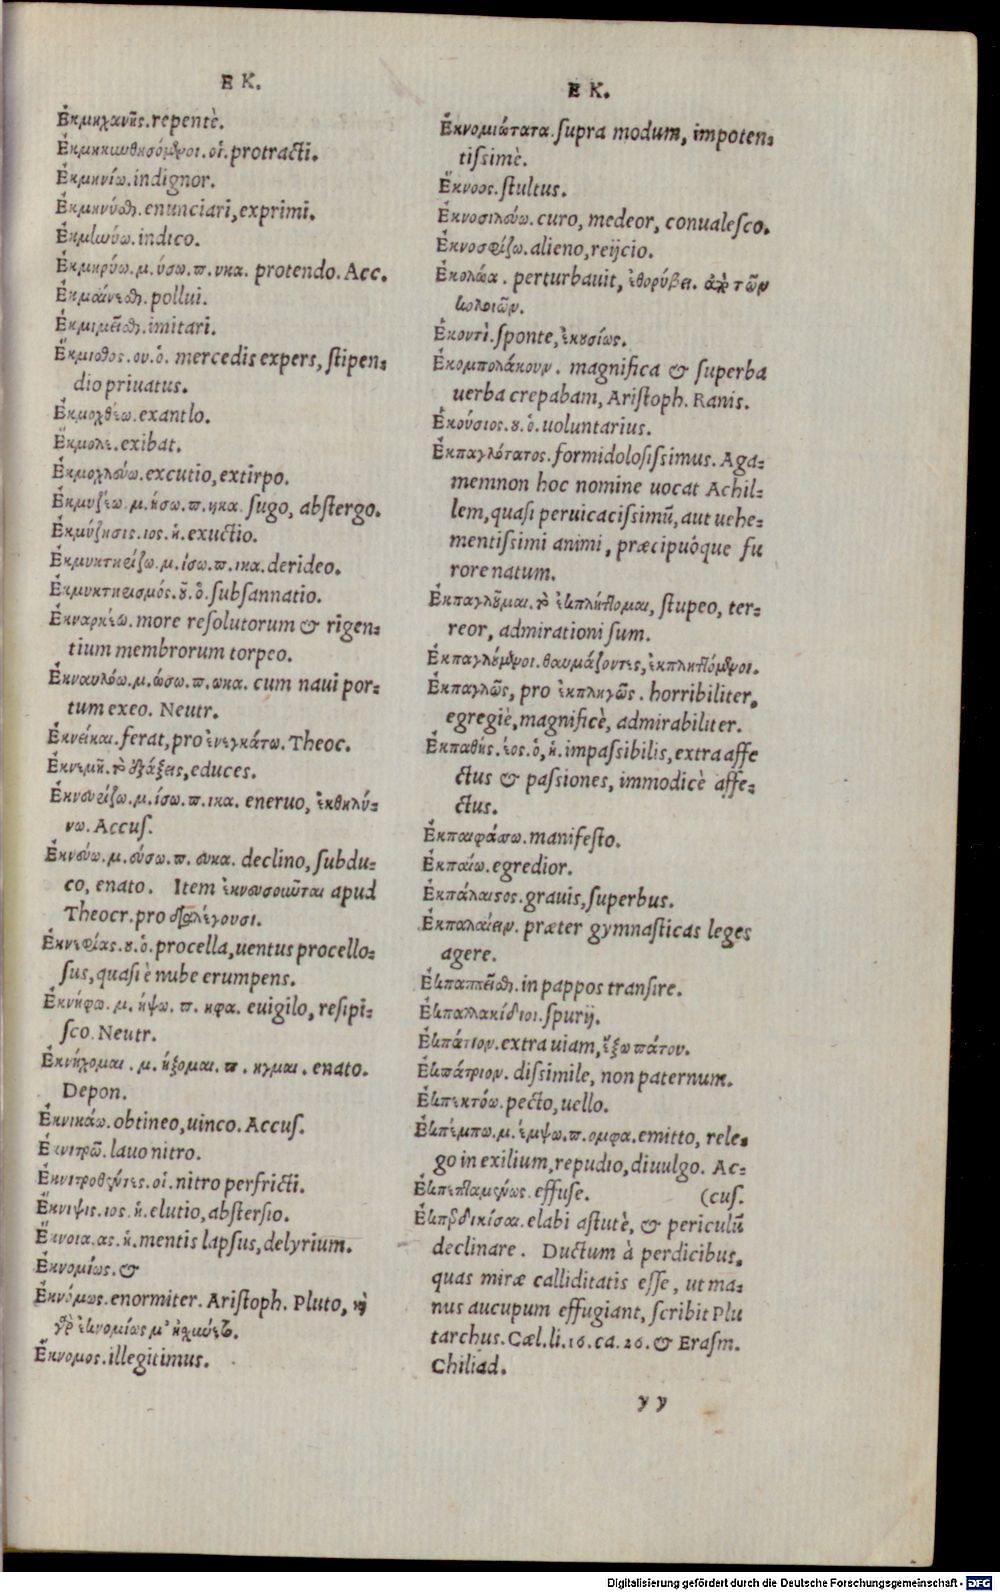 E K.
Ἐκμηχανῆς. repentè.
Ἐκμηκυνθησόμενοι. οἱ. protracti.
Ἐκμηνίω. indignor.
Ἐκμηνύεσθαι. enunciari, exprimi.
Ἐκμηνύω. indico.
Ἐκμηρύω. μ. ύσω. π. υκα. protendo. Acc.
Ἐκμαίνεσθαι. pollui.
Ἐκμιμεῖσθαι. imitari.
Ἔκμισθος. ου. ὁ. mercedis expers, stipen-
dio priuatus.
Ἐκμοχθέω. exantlo.
Ἔκμολε. exibat.
Ἐκμοχλεύω. excutio, extirpo.
Ἐκμυζέω. μ. ήσω. π. ηκα. sugo, abstergo.
Ἐκμύζησις. ιος. ἡ. exuctio.
Ἐκμυκτηρίζω. μ. ίσω. π. ικα. derideo.
Ἐκμυκτηρισμός. οῦ. ὁ. subsannatio.
Ἐκναρκέω. more resolutorum & rigen-
tium membrorum torpeo.
Ἐκναυλόω. μ. ώσω. π. ωκα. cum naui por-
tum exeo. Neutr.
Ἐκνείκαι. ferat, pro ἐνεγκάτω. Theoc.
Ἐκνεμῆ. τὸ ἐξάξεις, educes.
Ἐκνευρίζω. μ. ίσω. π. ικα. eneruo, ἐκθηλύ-
νω. Accus.
Ἐκνεύω. μ. εύσω. π. ευκα. declino, subdu-
co, enato. Item ἐκνευσοιῶται apud
Theocr. pro διαλέγουσι.
Ἐκνεφίας. ου. ὁ. procella, uentus procello-
sus, quasi è nube erumpens.
Ἐκνήφω. μ. ήψω. π. ηφα. euigilo, resipi-
sco. Neutr.
Ἐκνήχομαι. μ. ήξομαι. π. ηγμαι. enato.
Depon.
Ἐκνικάω. obtineo, uinco. Accus.
Ἐκνιτρῶ. lauo nitro.
Ἐκνιτροθέντες. οἱ. nitro perfricti.
Ἔκνιψις. ιος. ἡ. elutio, abstersio.
Ἔκνοια. ας. ἡ. mentis lapsus, delyrium.
Ἐκνομίως. &
Ἐκνόμως. enormiter. Aristoph. Pluto, καὶ
γὰρ ἐκνομίως μ'
Ἔκνομος. illegitimus.
E K.
Ἐκνομιώτατα. supra modum, impoten-
tissimè.
Ἔκνοος. stultus.
Ἐκνοσιλεύω. curo, medeor, conualesco.
Ἐκνοσφίζω. alieno, reijcio.
Ἐκολώα. perturbauit, ἐθορύβει. ἀπὸ τῶν
κολοιῶν.
Ἑκοντὶ. sponte, ἑκουσίως.
Ἐκομπολάκουν. magnifica & superba
uerba crepabam, Aristoph. Ranis.
Ἑκούσιος. ου. ὁ. uoluntarius.
Ἐκπαγλότατος. formidolosissimus. Aga-
memnon hoc nomine uocat Achil-
lem, quasi peruicacissimũ, aut uehe-
mentissimi animi, præcipuóque fu
rore natum.
Ἐκπαγλοῦμαι. τὸ ἐκπλήττομαι, stupeo, ter-
reor, admirationi sum.
Ἐκπαγλούμενοι. θαυμάζοντες, ἐκπληττόμενοι.
Ἐκπαγλῶς, pro ἐκπληγῶς. horribiliter,
egregiè, magnificè, admirabiliter.
Ἐκπαθής. έος. ὁ, ἡ. impassibilis, extra affe
ctus & passiones, immodicè affe-
ctus.
Ἐκπαιφάσω. manifesto.
Ἐκπαίω. egredior.
Ἐκπάλαιστος. grauis, superbus.
Ἐκπαλαίειν. præter gymnasticas leges
agere.
Ἐκπαππεῖσθαι. in pappos transire.
Ἐκπαλλακίδιοι. spurij.
Ἐκπάτιον. extra uiam, ἔξω πάτου.
Ἐκπάτριον. dissimile, non paternum.
Ἐκπεκτόω. pecto, uello.
Ἐκπέμπω. μ. έμψω. π. ομφα. emitto, rele-
go in exilium, repudio, diuulgo. Ac-
Ἐκπεπταμένως. effuse. (cus.
Ἐκπερδικίσαι. elabi astutè, & periculũ
declinare. Ductum à perdicibus,
quas miræ calliditatis esse, ut ma-
nus aucupum effugiant, scribit Plu
tarchus. Cæl. li. 16. ca. 26. & Erasm.
Chiliad.
y y
Digitalisierung gefördert durch die Deutsche Forschungsgemeinschaft - DFG